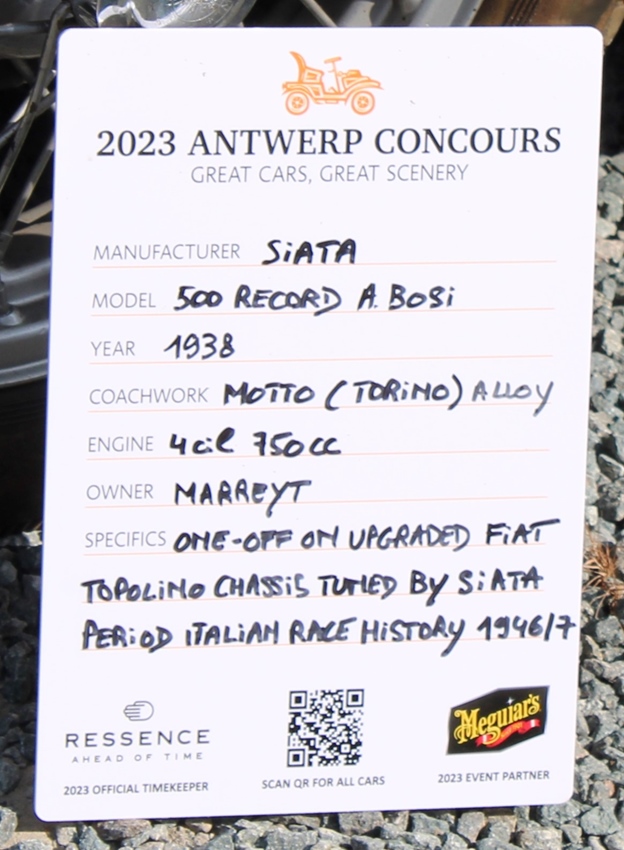 2023 ANTWERP CONCOURS
GREAT CARS, GREAT SCENERY
MANUFACTURER SiATA
MODEL 500 RECORD A. BOSi
YEAR 1938
COACHWORK MOTTO (TORiNO) ALLOY
ENGINE 4cil 750cc
OWNER MARREYT
SPECIFICS ONE-OFF ON UPGRADED FiAT
TOPOLiNO CHASSiS TUNED By SiATA
PERiOD iTALiAN RACE HiSTORY 1946/7
RESSENCE
AHEAD OF TIME
2023 OFFICIAL TIMEKEEPER
SCAN QR FOR ALL CARS
Meguiar's
2023 EVENT PARTNER